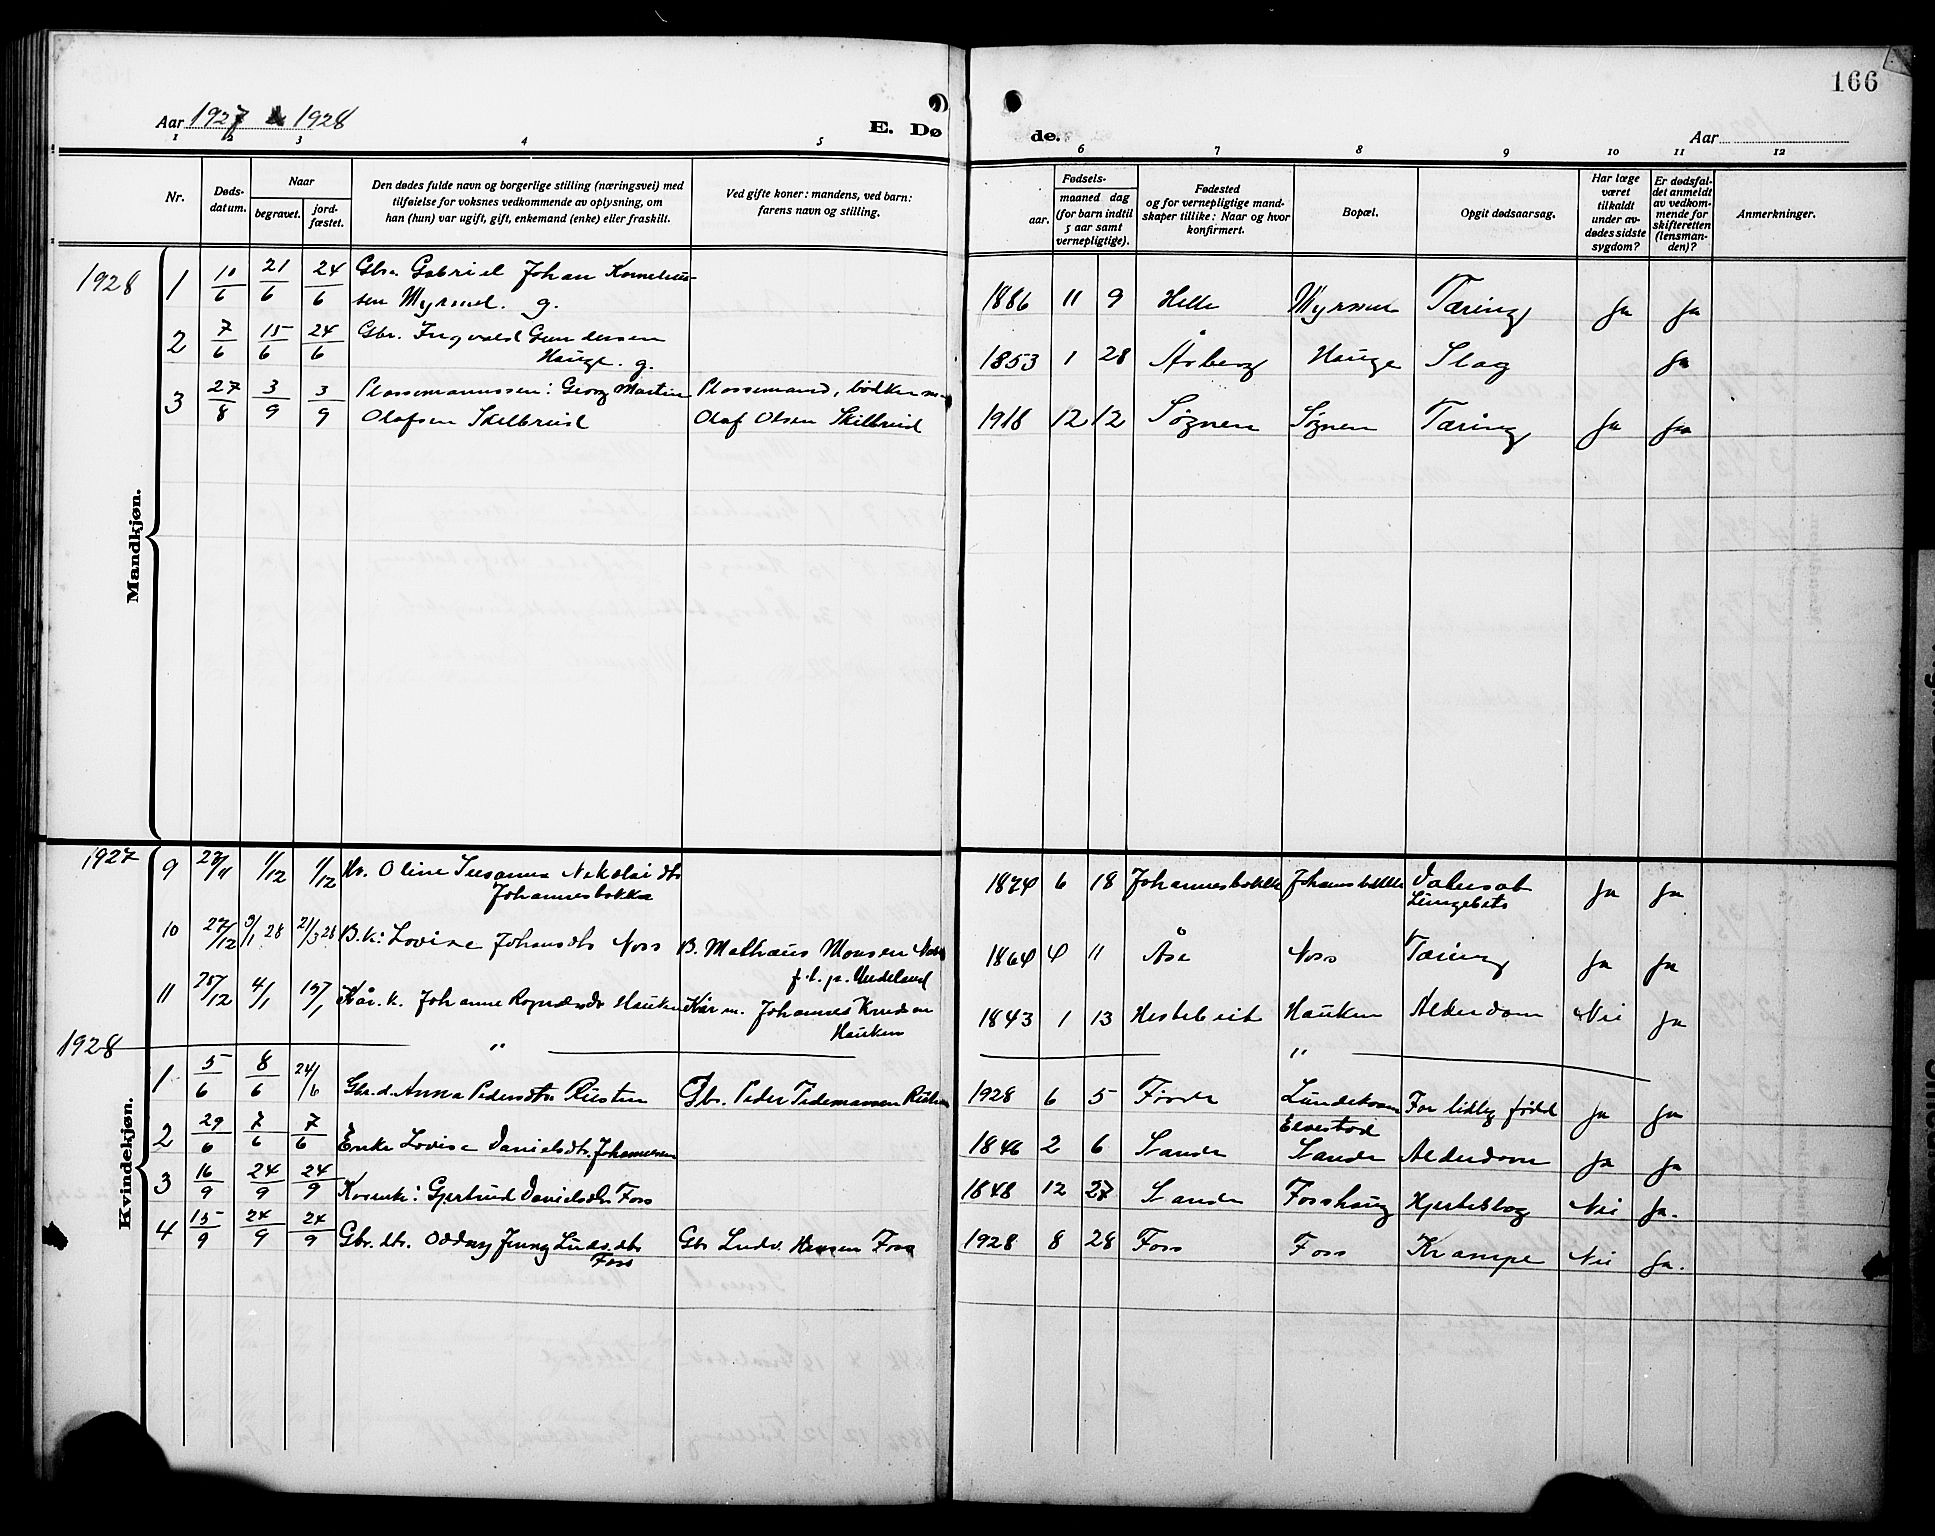 166
Aar 1927 & 1928
E. Dø
de.
Aar
1 2 3 4 5 6 7 8 9 10 11 12
Nr.
Døds-
datum.
Naar
begravet.
jord-
fæstet.
Den dødes fulde navn og borgerlige stilling (næringsvei) med
tilføielse for voksnes vedkommende av oplysning, om
han (hun) var ugift, gift, enkemand (enke) eller fraskilt.
Ved gifte koner: mandens, ved barn:
farens navn og stilling.
Fødsels-
aar.
maaned dag
(for barn indtil
5 aar samt
vernepligtige).
Fødested
og for vernepligtige mand-
skaper tillike: Naar og hvor
konfirmert.
Bopæl.
Opgit dødsaarsag.
Har læge
været
tilkaldt
under av-
dødes sidste
sygdom?
Er dødsfal-
det anmeldt
av vedkom-
mende for
skifteretten
(lensman-
den)?
Anmerkninger.
Mandkjøn.
1928 1 10/6 21/6 24/6 Gbr. Gabriel Johan Kornelius-
sen Myrmel. g. 1886 11 9 Helle Myrmel Tæring Ja Ja
2 7/6 15/6 24/6 Gbr. Ingvald Gundersen
Hauge. g. 1853 1 28 Årberg Hauge Slag Ja
3 27/8 3/9 3/9 Plassemannssøn: Georg Martin Plassemand, bødker
Olafsen Skilbreid Olaf Olsen Skilbreid 1918 12 12 Søgnen Søgnen Tæring Ja Ja
Kvindekjøn.
1927 9 27/11 1/12 1/12 Oline Susanna Nikolaidtr
Johannesbakke 1874 6 18 Johannesbakke Johansbakke
Ja Ja
10 27/12 3/1 28 21/3 28 B.k: Lovise Johansdtr Noss B. Mathæus Monsen
1864 4 11 Åse Noss Tæring Ja Ja
11 4/1 Kår.k. Johanne Hauken Kårm. Johannes Knudsen
Hauken 1843 1 13 Hestebeit Hauken Alderdom Nei Ja
1928 " "
1 5/6 8/6 24/6 Gbr.d. Anna Pedersdtr Riisten Gbr. Peder Tidemansen 1928 6 5 Førde
For tidlig født Ja Ja
2 29/6 7/6 7/6 Enke Lovise Danielsdtr. Johannesen 1846 2 6 Sande Sande Alderdom Ja Ja
3 16/9 24/9 24/9 Gjertrud Danielsdtr Foss 1848 12 27 Sande Fosshaug Hjerteslag Nei Ja.
4 15/9 24/9 24/9 Gbr. dtr. Oddny Jenny Ludv.dtr
Foss Gbr Ludv. Hansen Foss 1928 8 28 Foss Foss Krampe Nei Ja.